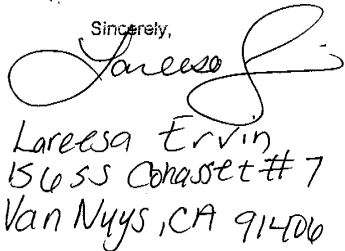 Sincerely,
Lareesa
Lareesa Ervin
15655 Cohasset #7
Van Nuys, CA 91406